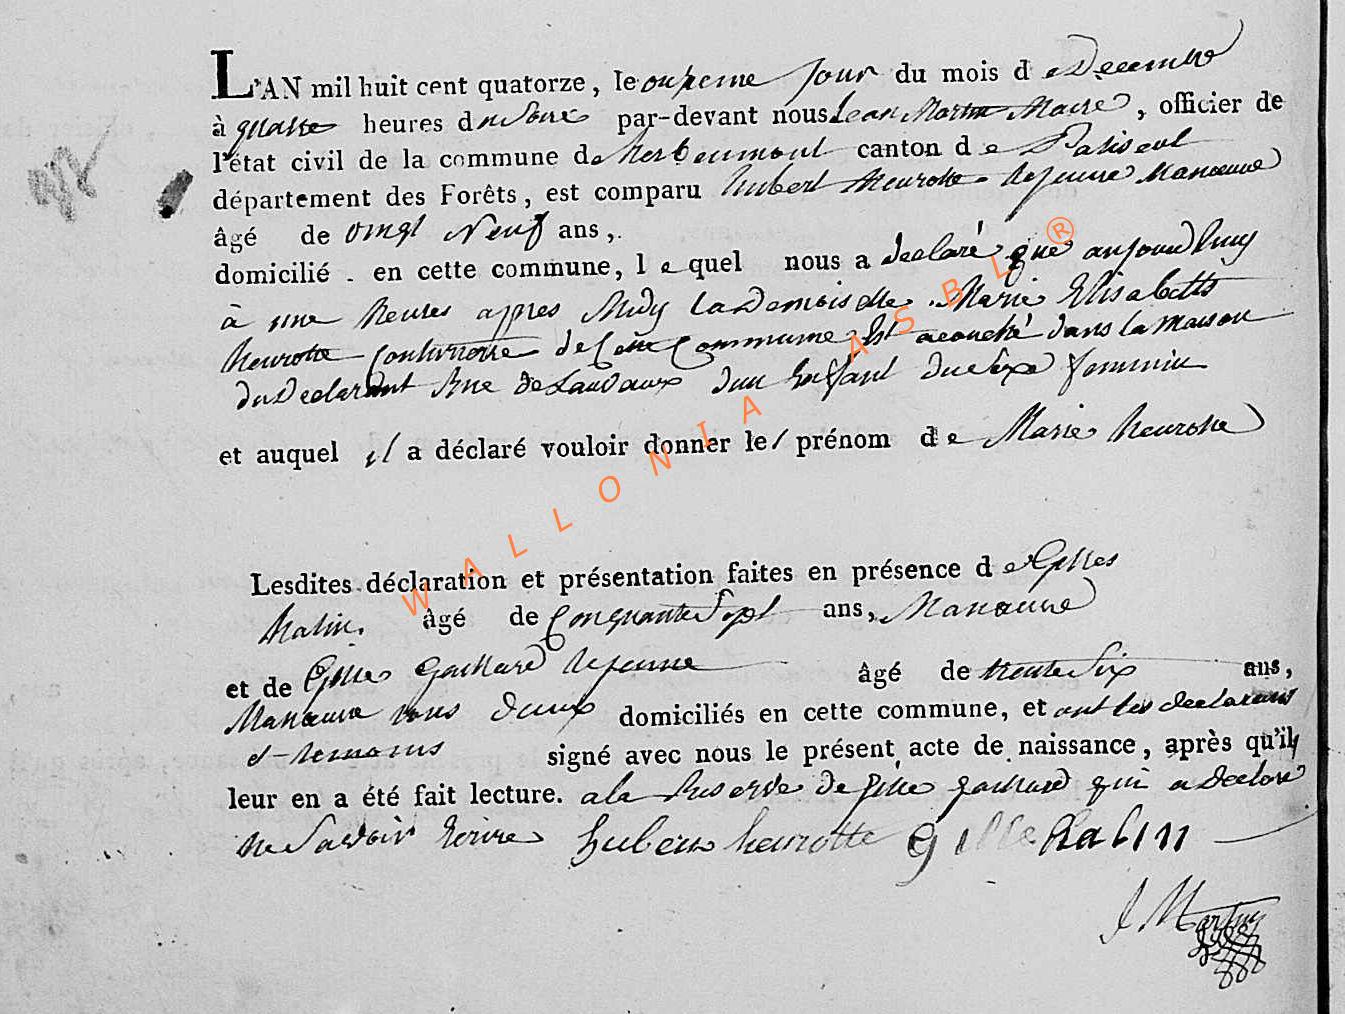 L'AN mil huit cent quatorze, le onzieme jour du mois de Decembre
à quatre heures du soire par-devant nous Jean Martin Maire, officier de
l'état civil de la commune de herbeumont canton de Paliseul
département des Forêts, est comparu hubert heurotte lejeune Manœuvre
âgé de vingt Neuf ans,
domicilié en cette commune, lequel nous a declaré que aujourdhuy
à une heures apres Midy la Demoiselle Marie Elisabette
heurotte Couturiere de Cette Commune Est acouché dans la maison
du Declarant Rue de Lauvaux dun Enfant du Sexe feminin
et auquel il a déclaré vouloir donner le prénom de Marie heurotte
Lesdites déclaration et présentation faites en présence de Gilles
halin âgé de Cinquante Sept ans, Manœuvre
et de Gille Gaillard lejeune âgé de trente Six ans,
Manœuvre tous deux domiciliés en cette commune, et ont les declarants
et temoins signé avec nous le présent acte de naissance, après qu'il
leur en a été fait lecture. a la Reserve de Gille gaillard qui a declaré
ne Savoir Ecrire hubert heurotte Gille halin
J Martin
WALLONIA ASBL ®